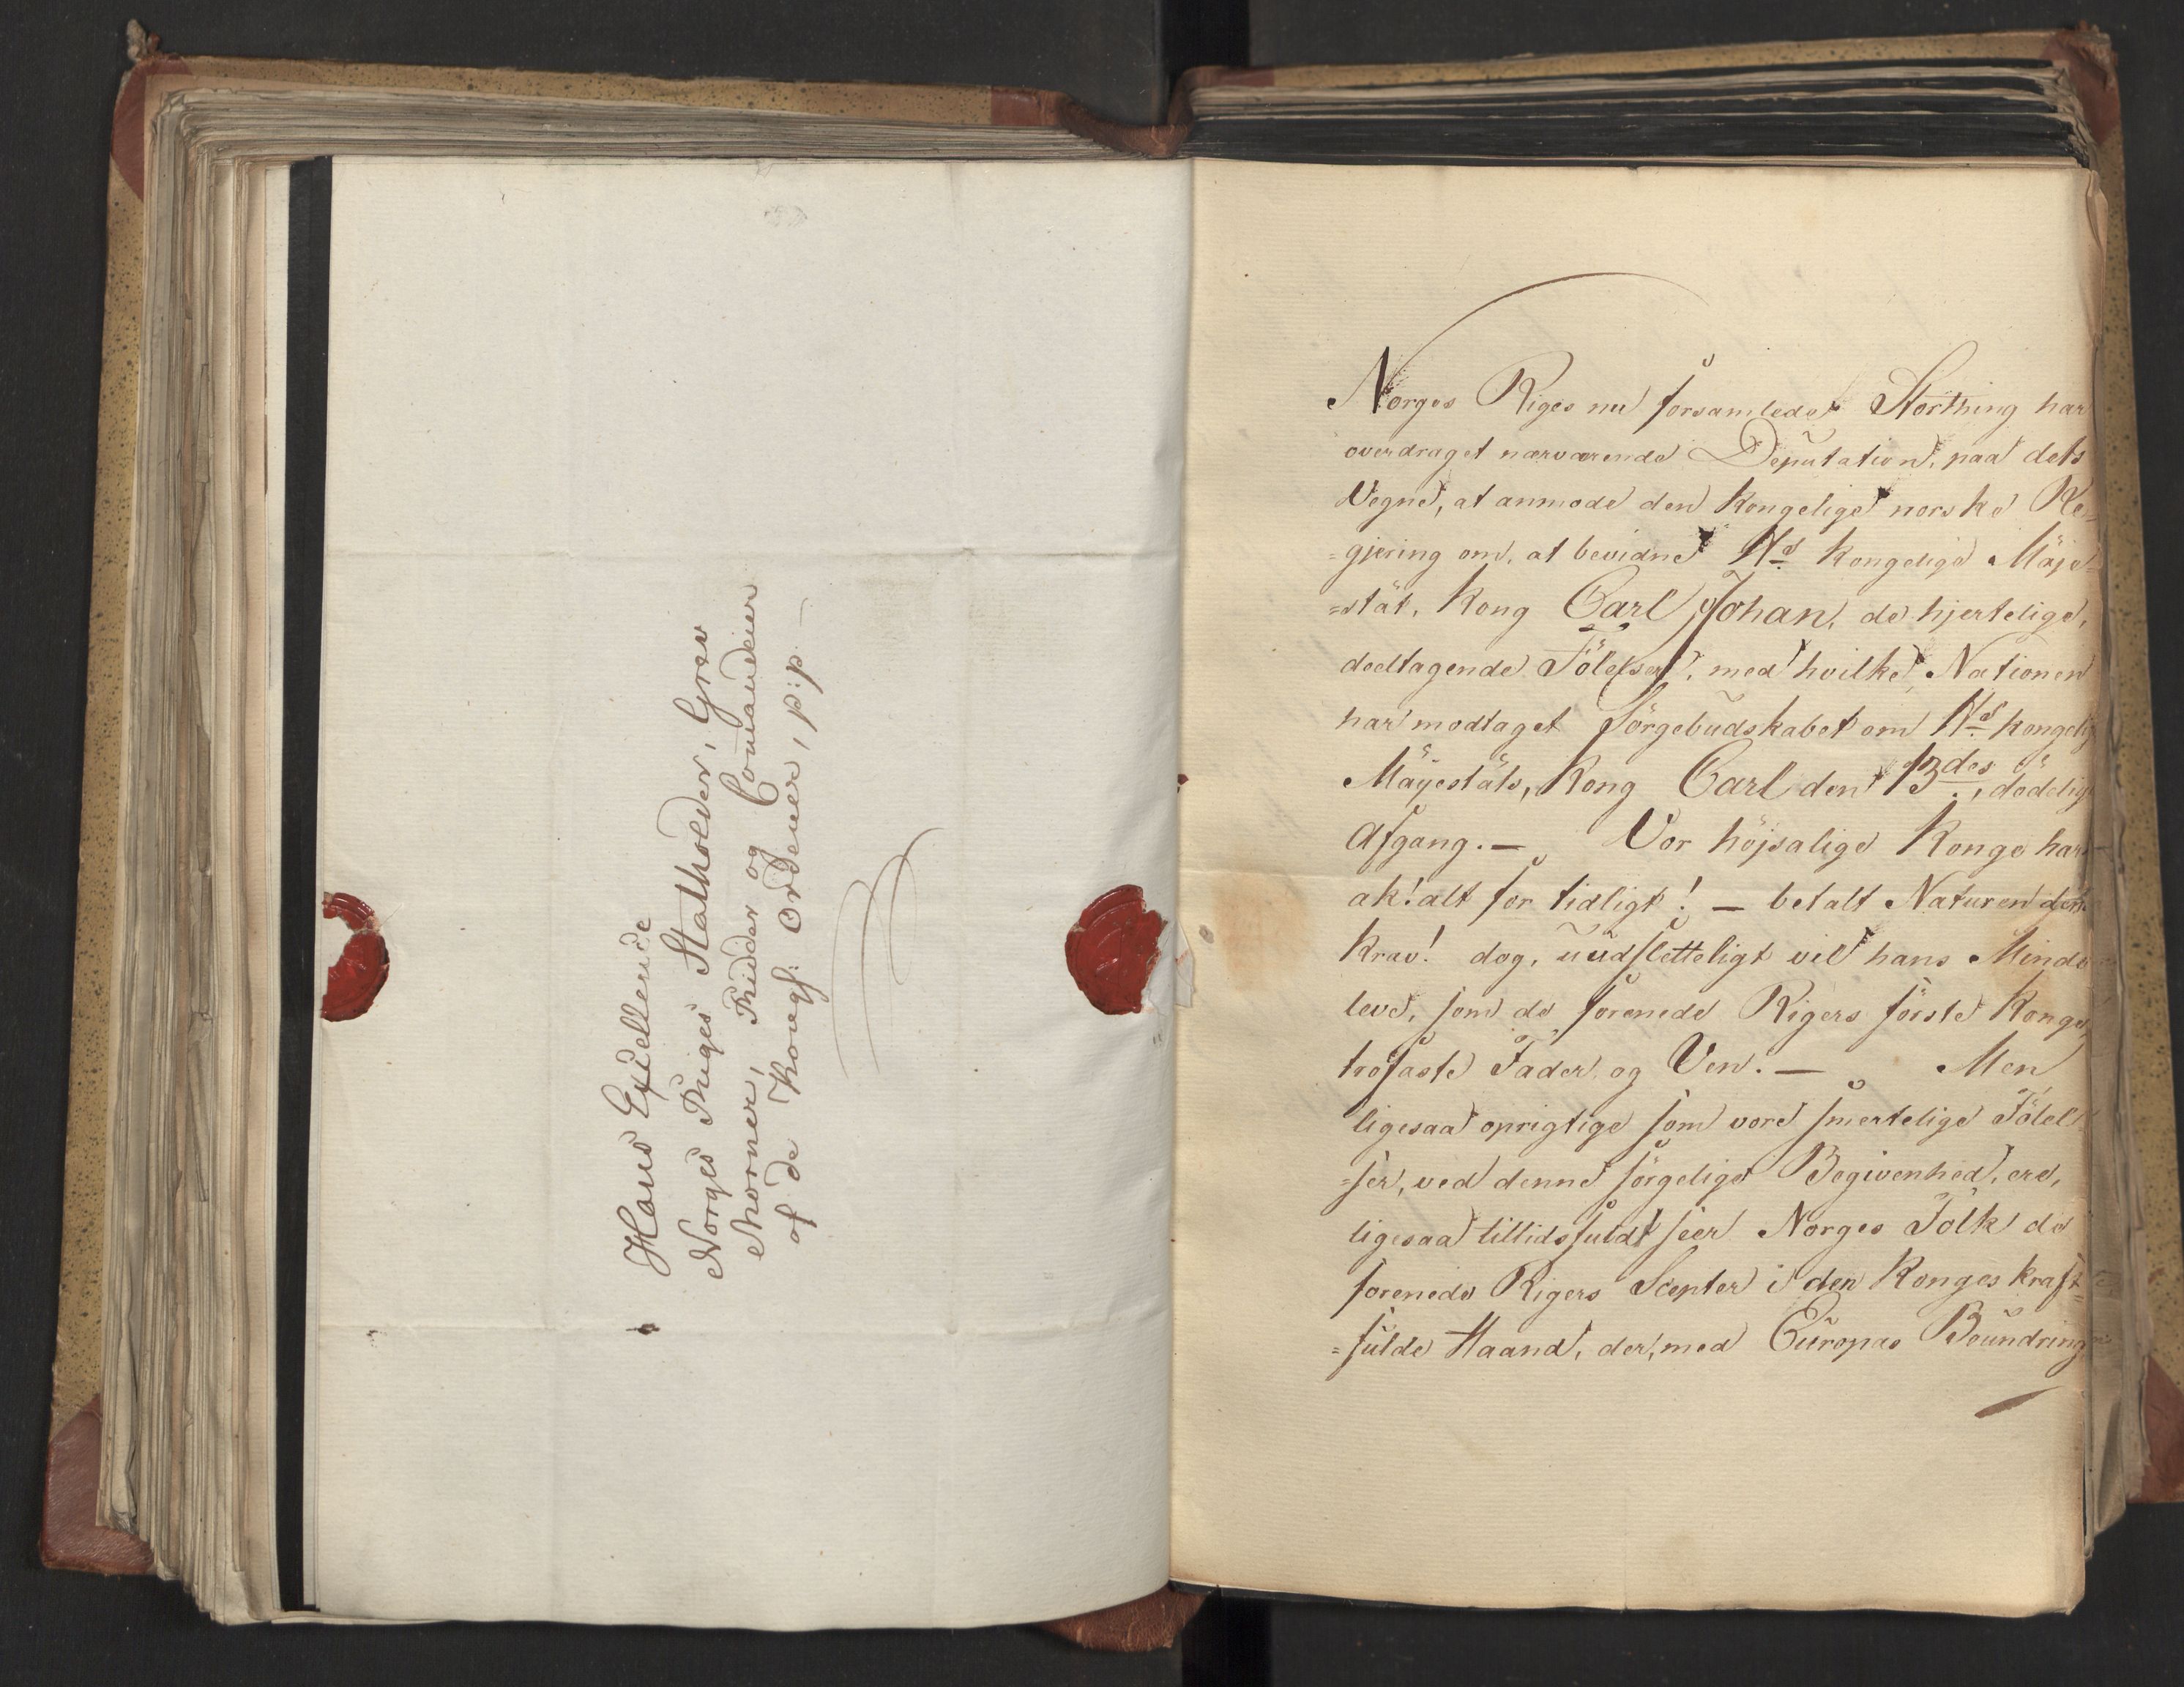 Hans Exellence
Norges Riiges Statholder, Grev
Mörner, Ridder og Comandeur
af de Kongl: Ordener, p:p.
Norges Riges nu forsamlede Storthing har
overdraget nærværende Deputation, paa dets
Vegne, at anmode den kongelige norske Re-
=gjering om, at bevidne Hs kongelige Maje-
=stæt, Kong Carl Johan, de hjertelige,
deeltagende Fölelser, med hvilke Nationen
har modtaget Sörgebudskabet om Hs kongelig
Mayestæts, Kong Carl den 13des, dödelig
Afgang. — Vor höjsalige Konge har
ak! alt for tidligt! — betalt Naturen dens
Krav! dog, uudsletteligt vil hans Minde
leve, som de forenede Rigers förste Konge,
trofaste Fader og Ven. — Men
ligesaa oprigtige som vore smertelige Fölel
=ser, ved denne sörgelige Begivenhed, ere,
ligesaa tillidsfuldt seer Norges Folk de
forenede Rigers Scepter i den Konges kraft-
=fulde Haand, der, med Europas Beundring